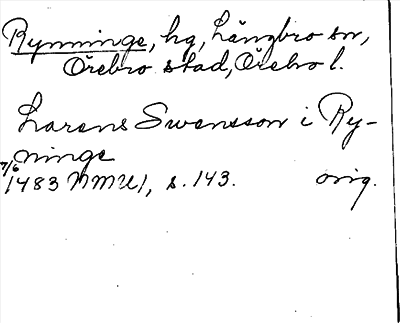 Rynninge, hg, Längbro sn,
Örebro stad, Örebro l.
Larens Swensson i Ry-
ninge
7/6 1483 NMU1, s. 143. orig.